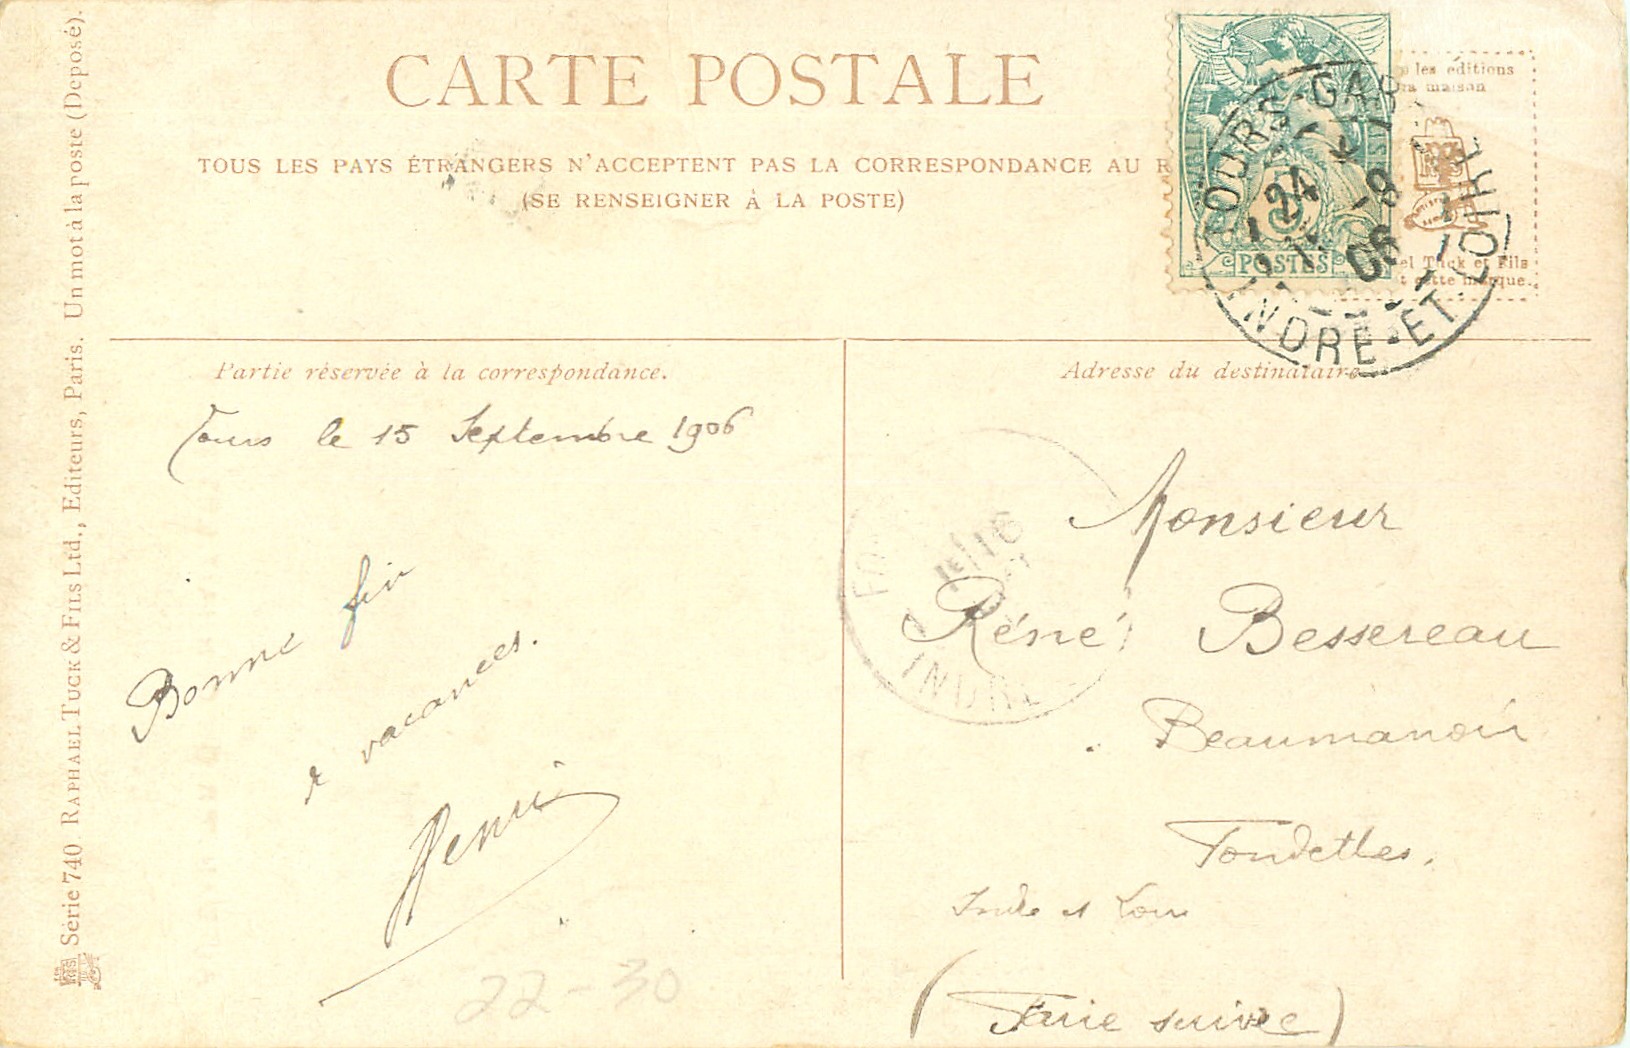 CARTE POSTALE
TOUS LES PAYS ÉTRANGERS N'ACCEPTENT PAS LA CORRESPONDANCE AU R
(SE RENSEIGNER À LA POSTE)
les éditions
maison
Tuck et Fils
cette marque.
POSTES
TOURS-GARE
24
-9
06
INDRE-ET-LOIRE
Partie réservée à la correspondance.
Tours le 15 Septembre 1906
Bonne fin
de vacances.
Henri
22-30
Adresse du destinataire
Monsieur
Réné Bessereau
Beaumanoir
Fondettes.
Indre et Loire
(Faire suivre)
16
INDRE
Série 740. RAPHAEL TUCK & FILS Ltd., Editeurs, Paris. Un mot à la poste (Deposé).